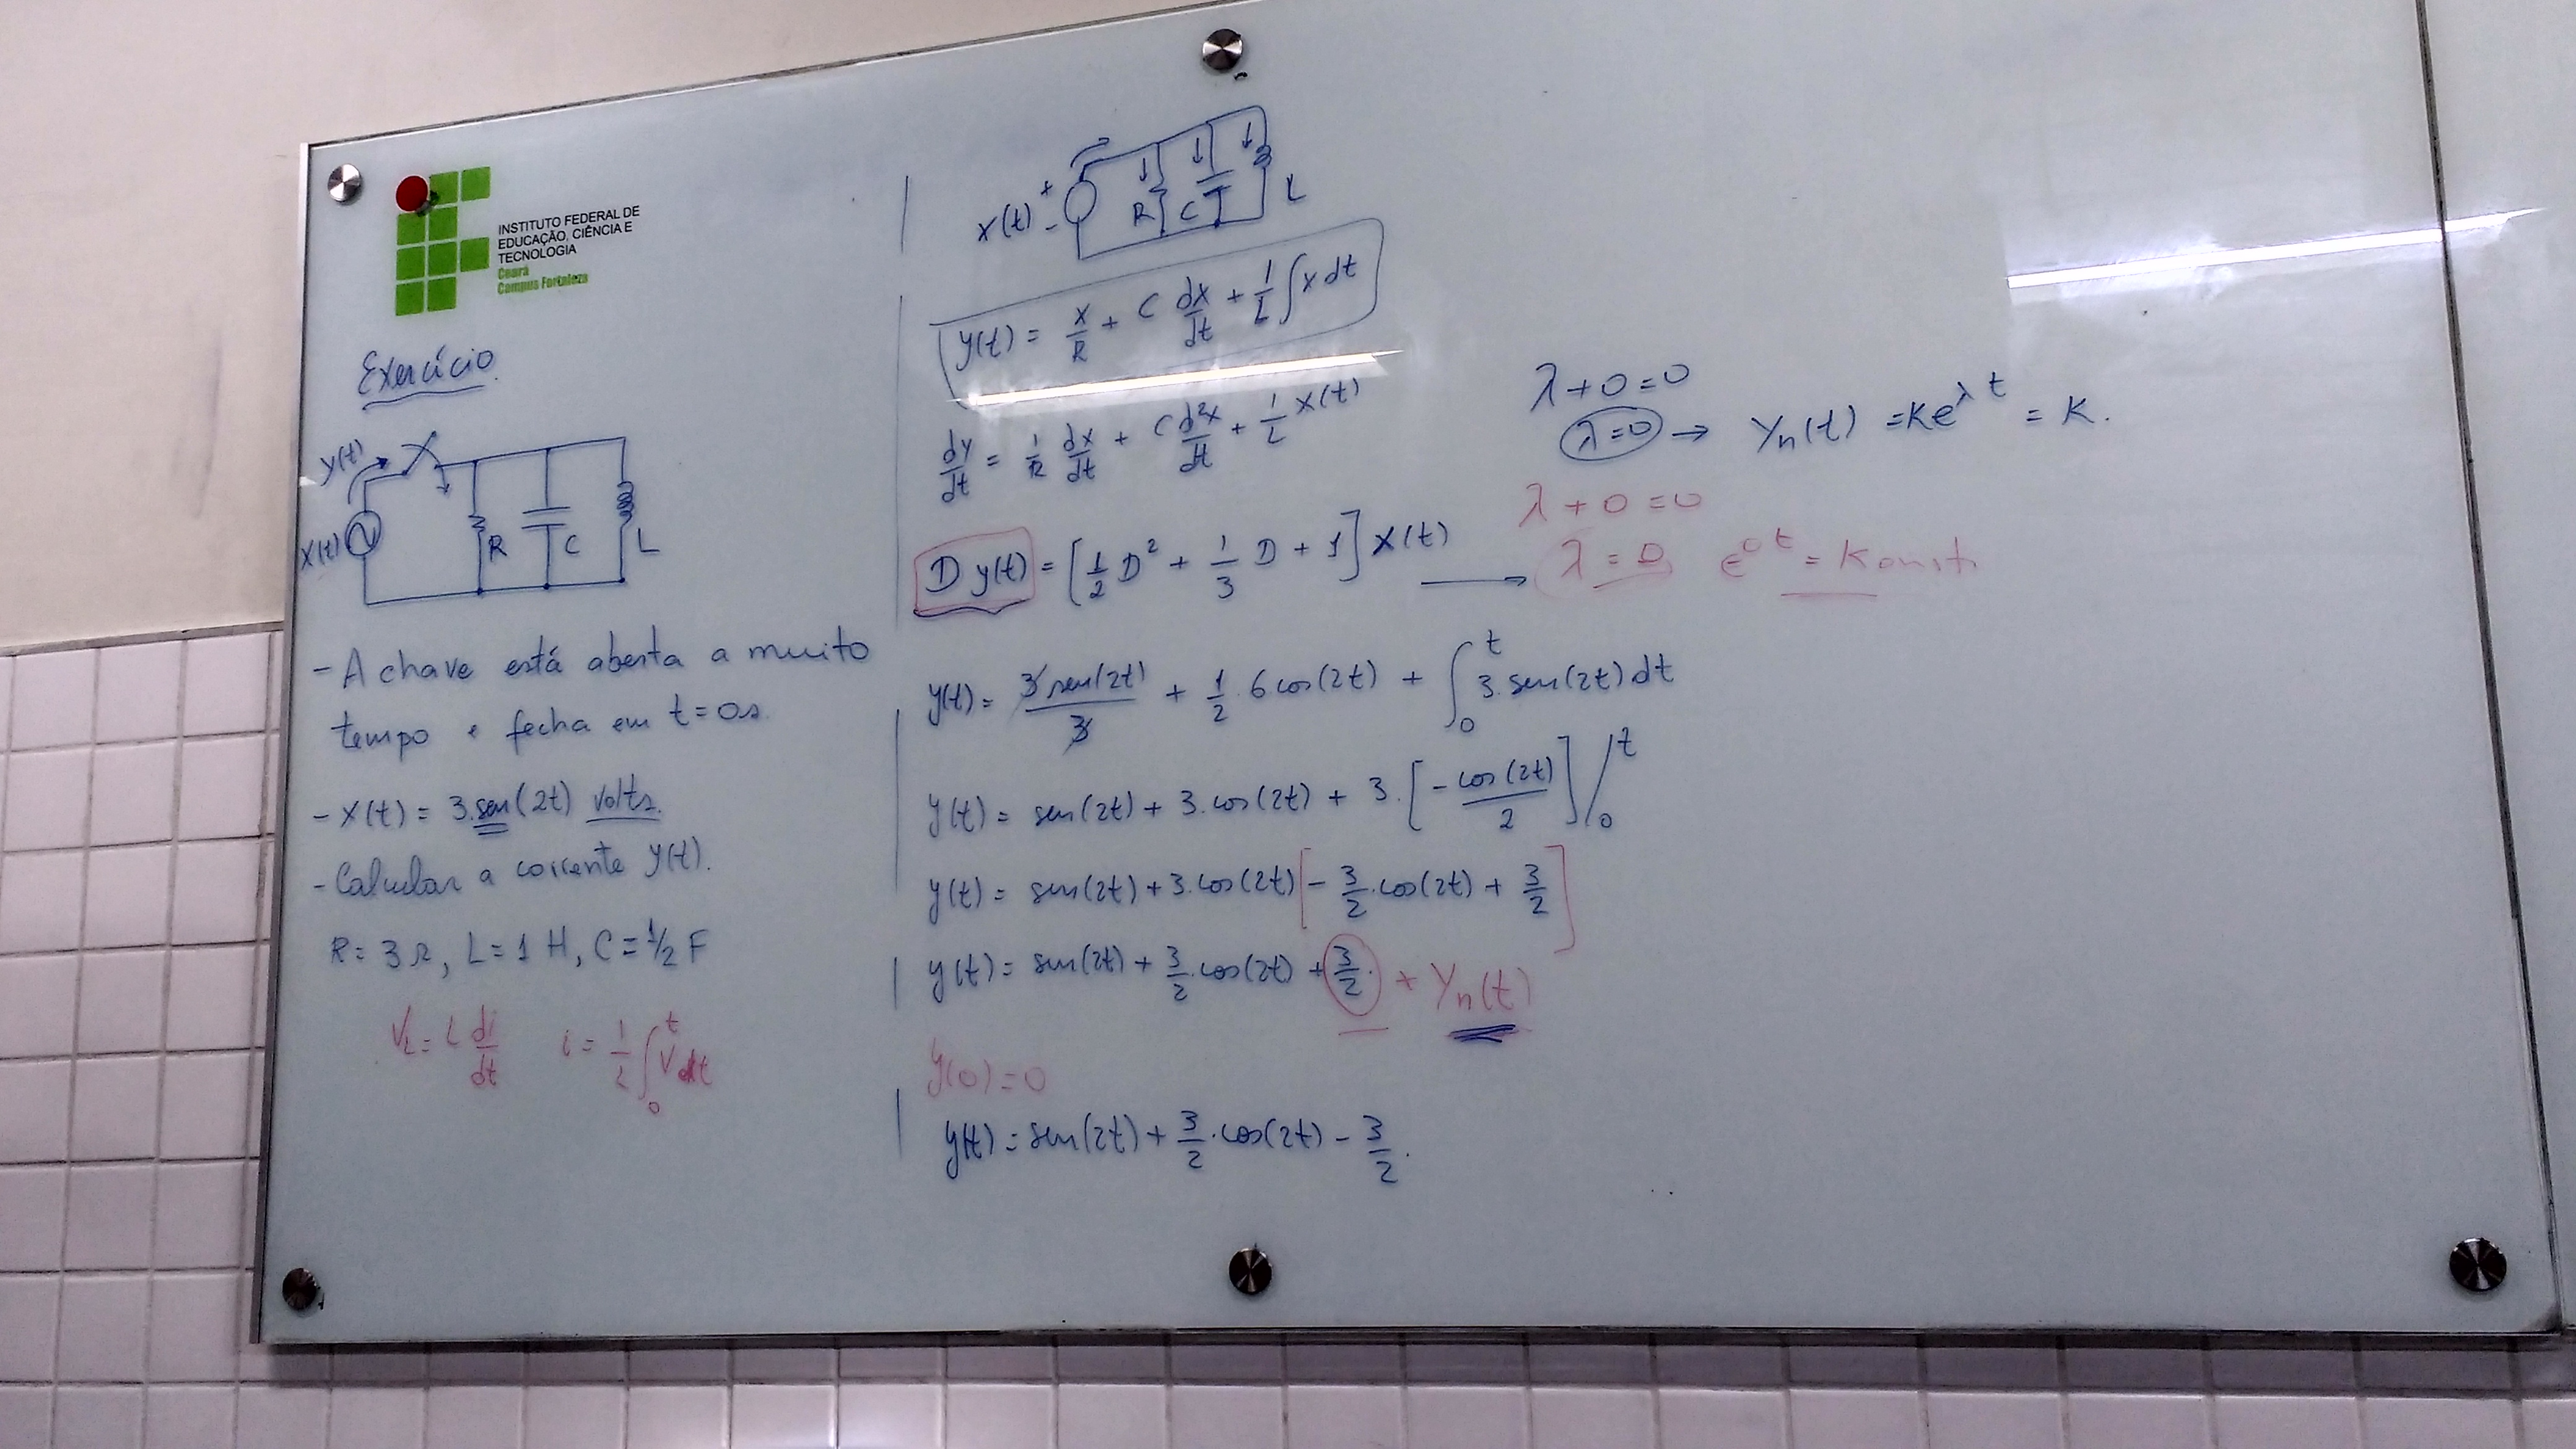 INSTITUTO FEDERAL DE
EDUCAÇÃO, CIÊNCIA E
TECNOLOGIA
Ceará
Campus Fortaleza
Exercício
y(t)
x(t)
R
C
L
- A chave está aberta a muito
tempo e fecha em t=0s.
- x(t) = 3.sen(2t) volts.
- Calcular a corrente y(t).
R= 3 Ω, L= 1 H, C = 1/2 F
V_L = L di/dt    i = 1/L ∫_0^t V dt
x(t) + -
R
C
L
y(t) = x/R + C dx/dt + 1/L ∫ x dt
dy/dt = 1/R dx/dt + C d²x/dt + 1/L x(t)
D y(t) = [1/2 D² + 1/3 D + 1] x(t) →
y(t) = 3 sen(2t)/3 + 1/2 . 6 cos(2t) + ∫_0^t 3.sen(2t) dt
y(t) = sen(2t) + 3.cos(2t) + 3.[- cos(2t)/2] /_0^t
y(t) = sen(2t) + 3.cos(2t) [- 3/2 .cos(2t) + 3/2]
y(t) = sen(2t) + 3/2 .cos(2t) + 3/2. + Y_n(t)
y(0) = 0
y(t) = sen(2t) + 3/2 .cos(2t) - 3/2.
λ + 0 = 0
λ = 0 → Y_n(t) = Ke^{λt} = K.
λ + 0 = 0
λ = 0 e^{0t} = Konst.